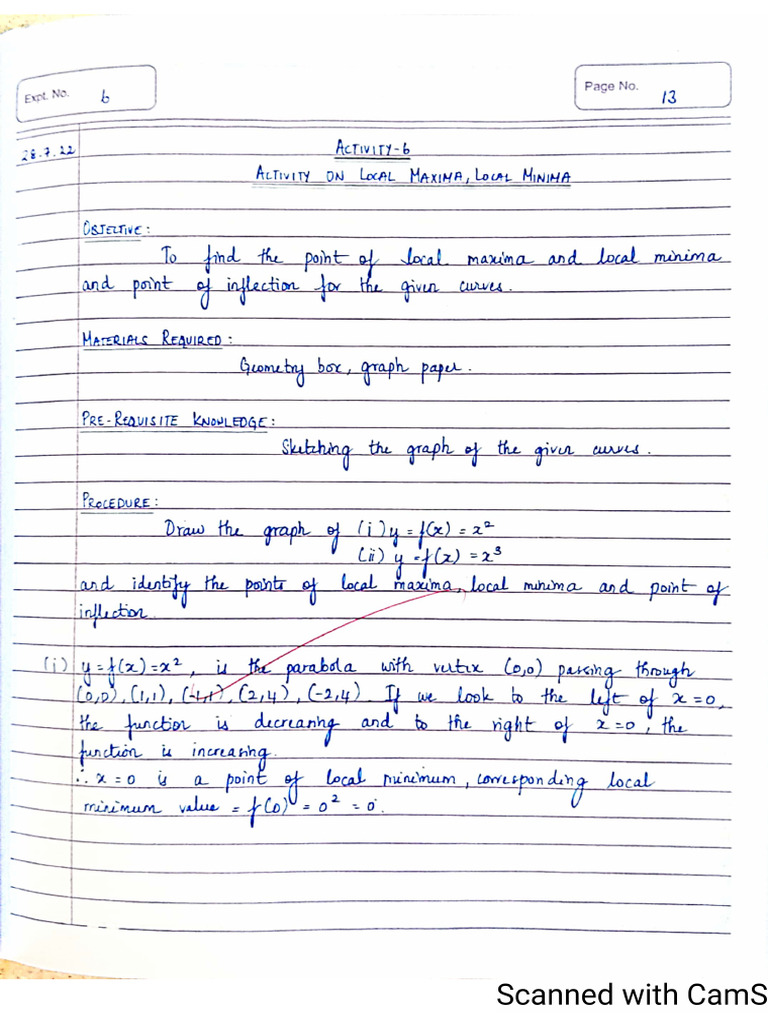 Expt. No. 6
Page No. 13
28.7.22
ACTIVITY-6
ACTIVITY ON LOCAL MAXIMA, LOCAL MINIMA
OBJECTIVE:
To find the point of local maxima and local minima
and point of inflection for the given curves.
MATERIALS REQUIRED:
Geometry box, graph paper.
PRE-REQUISITE KNOWLEDGE:
Sketching the graph of the given curves.
PROCEDURE:
Draw the graph of (i) y = f(x) = x²
(ii) y = f(x) = x³
and identify the points of local maxima, local minima and point of
inflection.
(i) y = f(x) = x², is the parabola with vertex (0,0) passing through
(0,0), (1,1), (-1,1), (2,4), (-2,4). If we look to the left of x=0,
the function is decreasing and to the right of x=0, the
function is increasing.
∴ x=0 is a point of local minimum, corresponding local
minimum value = f(0) = 0² = 0.
Scanned with CamS